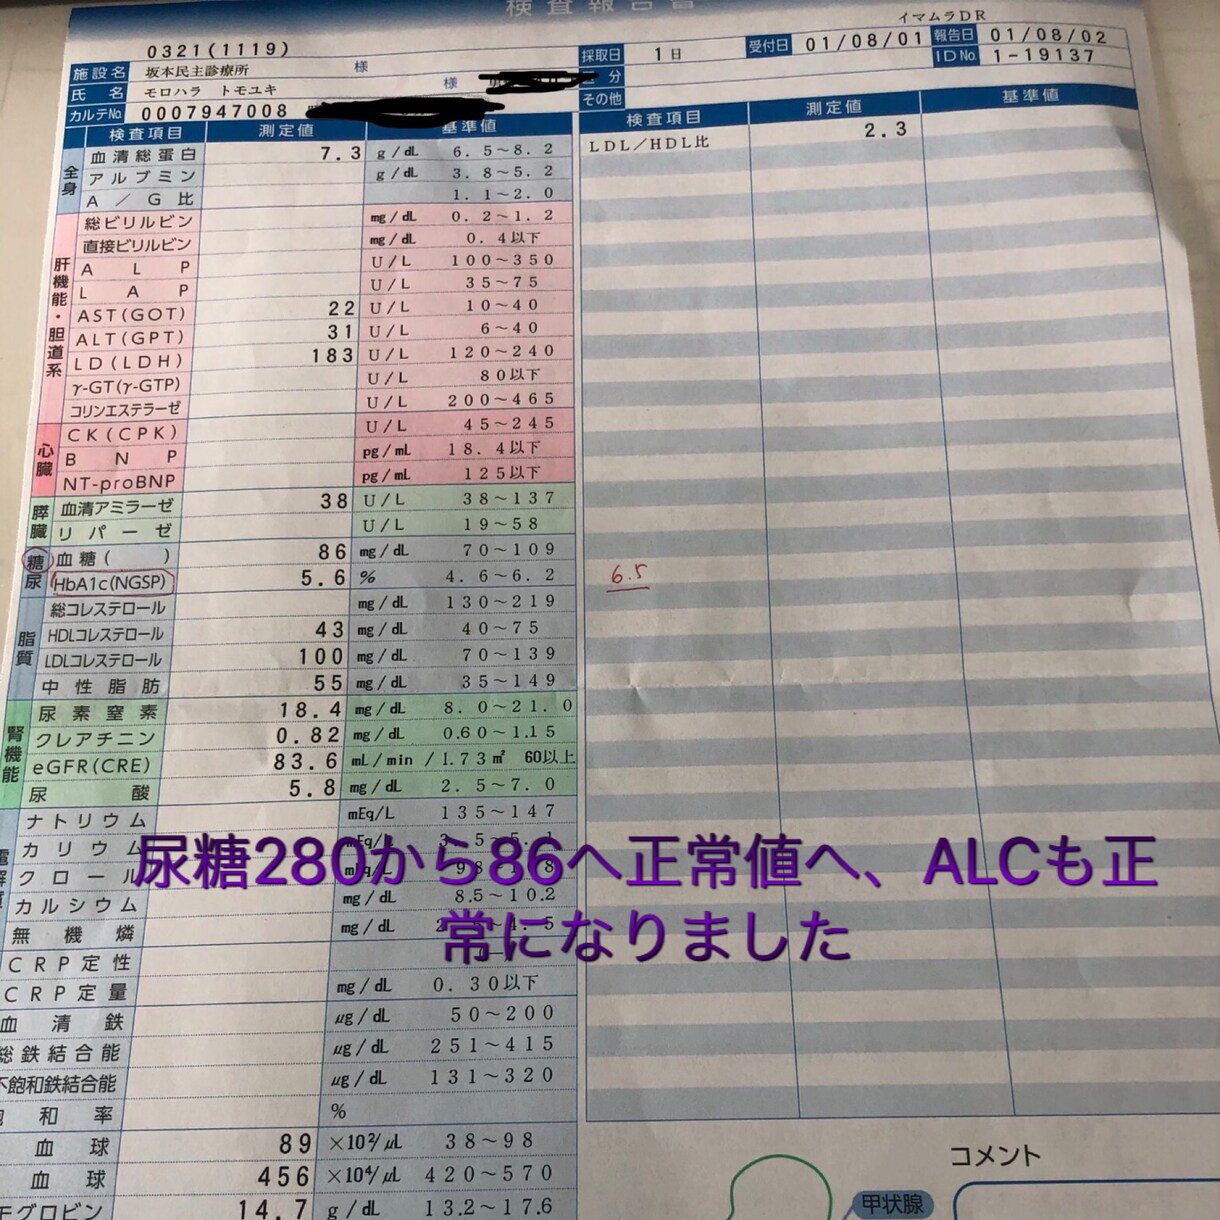 検査報告書
イマムラDR
0321(1119)
施設名 坂本民主診療所 様
採取日 1日 受付日 01/08/01 報告日 01/08/02
氏名 モロハラ トモユキ 様
分 ID No. 1-19137
カルテNo. 0007947008
その他
検査項目 測定値 基準値
検査項目 測定値 基準値
全身
血清総蛋白 7.3 g/dL 6.5~8.2
LDL/HDL比 2.3
アルブミン g/dL 3.8~5.2
A/G比 1.1~2.0
肝機能・胆道系
総ビリルビン mg/dL 0.2~1.2
直接ビリルビン mg/dL 0.4以下
ALP U/L 100~350
LAP U/L 35~75
AST(GOT) 22 U/L 10~40
ALT(GPT) 31 U/L 6~40
LD(LDH) 183 U/L 120~240
γ-GT(γ-GTP) U/L 80以下
コリンエステラーゼ U/L 200~465
心臓
CK(CPK) U/L 45~245
BNP pg/mL 18.4以下
NT-proBNP pg/mL 125以下
膵臓
血清アミラーゼ 38 U/L 38~137
リパーゼ U/L 19~58
糖尿
血糖( ) 86 mg/dL 70~109
HbA1c(NGSP) 5.6 % 4.6~6.2
6.5
脂質
総コレステロール mg/dL 130~219
HDLコレステロール 43 mg/dL 40~75
LDLコレステロール 100 mg/dL 70~139
中性脂肪 55 mg/dL 35~149
腎機能
尿素窒素 18.4 mg/dL 8.0~21.0
クレアチニン 0.82 mg/dL 0.60~1.15
eGFR(CRE) 83.6 mL/min/1.73㎡ 60以上
尿酸 5.8 mg/dL 2.5~7.0
ナトリウム mEq/L 135~147
カリウム
クロール
尿糖280から86へ正常値へ、ALCも正
常になりました
カルシウム mg/dL 8.5~10.2
無機燐 mg/dL
CRP定性
CRP定量 mg/dL 0.30以下
血清鉄 μg/dL 50~200
総鉄結合能 μg/dL 251~415
不飽和鉄結合能 μg/dL 131~320
和率 %
血球 89 ×10²/μL 38~98
血球 456 ×10⁴/μL 420~570
モグロビン 14.7 g/dL 13.2~17.6
コメント
甲状腺